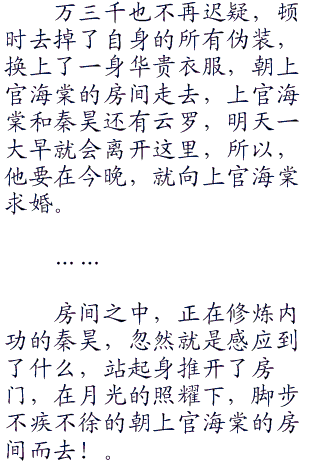 万三千也不再迟疑，顿
时去掉了自身的所有伪装，
换上了一身华贵衣服，朝上
官海棠的房间走去，上官海
棠和秦昊还有云罗，明天一
大早就会离开这里，所以，
他要在今晚，就向上官海棠
求婚。
……
房间之中，正在修炼内
功的秦昊，忽然就是感应到
了什么，站起身推开了房
门，在月光的照耀下，脚步
不疾不徐的朝上官海棠的房
间而去！。